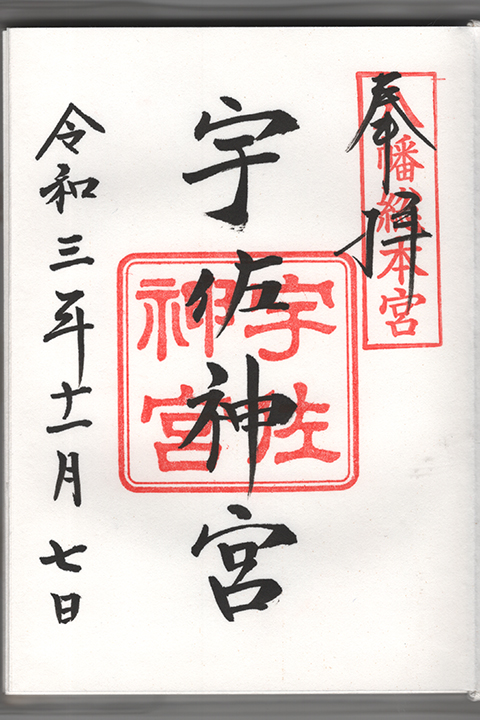 奉拝
八幡総本宮
宇佐神宮
宇佐
神宮
令和三年十一月七日